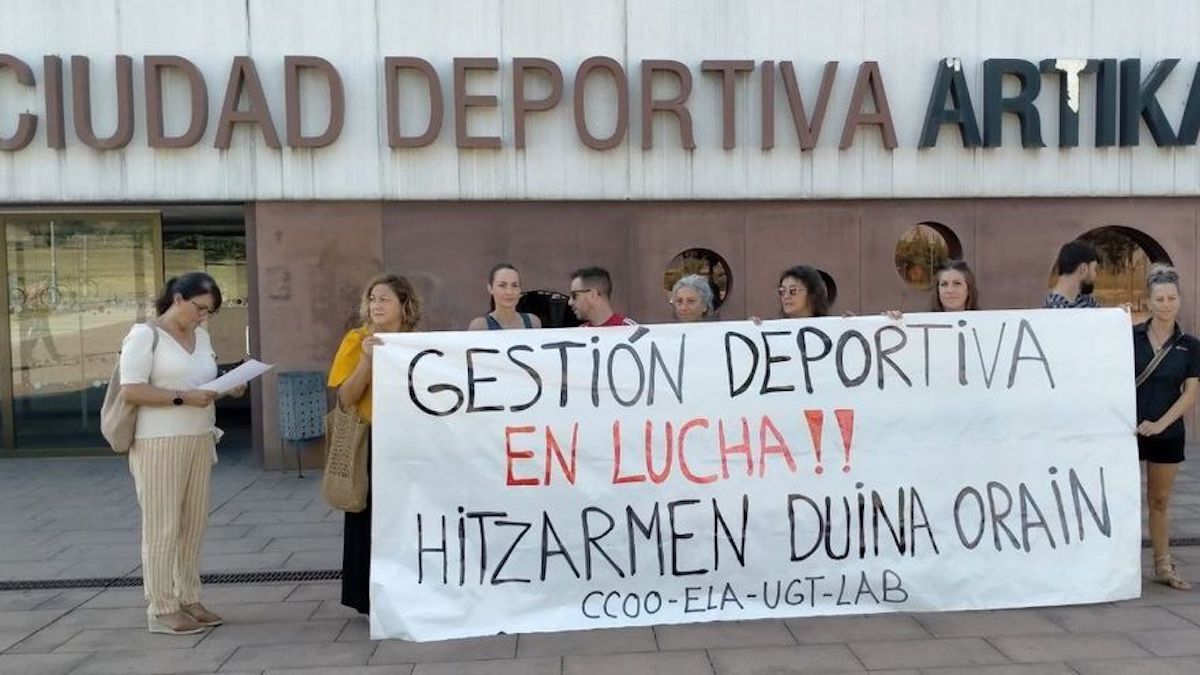 CIUDAD DEPORTIVA ARTIKA
GESTIÓN DEPORTIVA
EN LUCHA!!
HITZARMEN DUINA ORAIN
CCOO-ELA-UGT-LAB